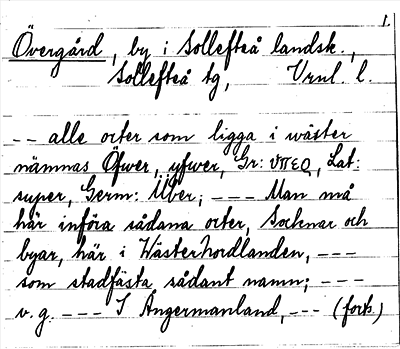 1.
Övergård, by i Sollefteå landsk.,
Sollefteå tg, Vrnl. l.
-- alle orter som ligga i wäster
nämnas Öfwer, yfwer, Gr: υπερ, Lat:
super, Germ: Über; --- Man må
här införa sådana orter, Socknar och
byar, här i Wästerhordlanden, ---
som stadfästa sådant namn; ---
v.g. --- I Angermanland, --- (forts.)